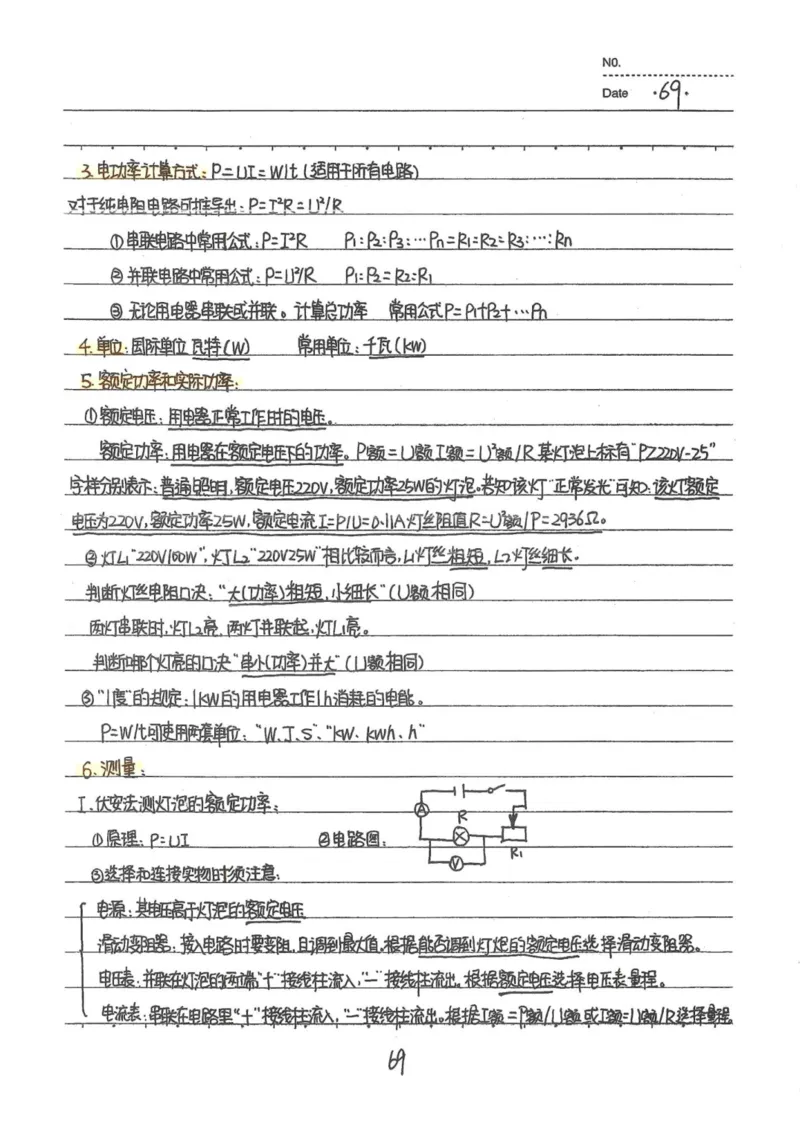 NO.
Date ·69·
3.电功率计算方式:P=UI=W/t(适用于所有电路)
对于纯电阻电路可推导出:P=I²R=U²/R
①串联电路中常用公式:P=I²R P₁:P₂:P₃:…Pn=R₁=R₂=R₃:…:Rn
②并联电路中常用公式:P=U²/R P₁:P₂=R₂:R₁
③无论用电器串联或并联。计算总功率 常用公式P=P₁+P₂+…Pn
4.单位:国际单位瓦特(W) 常用单位:千瓦(kW)
5.额定功率和实际功率:
①额定电压:用电器正常工作时的电压。
额定功率:用电器在额定电压下的功率。P额=U额I额=U²额/R某灯泡上标有“PZ220V-25”
字样分别表示:普通照明,额定电压220V,额定功率25W的灯泡。若知该灯“正常发光”可知:该灯额定
电压为220V,额定功率25W,额定电流I=P/U=0.11A灯丝阻值R=U²额/P=2936Ω。
②灯L₁“220V100W”,灯L₂“220V25W”相比较而言,L₁灯丝粗短,L₂灯丝细长。
判断灯丝电阻口决:“大(功率)粗短,小细长”(U额相同)
两灯串联时,灯L₂亮,两灯并联起,灯L₁亮。
判断哪个灯亮的口决“串小(功率)并大”(U额相同)
③“1度”的规定:1kW的用电器工作1h消耗的电能。
P=W/t可使用两套单位:“W、J、S”、“kW、kWh、h”
6.测量:
I.伏安法测灯泡的额定功率:
①原理:P=UI ②电路图:
A
R
V
R₁
③选择和连接实物时须注意:
电源:其电压高于灯泡的额定电压
滑动变阻器:接入电路时要变阻,且调到最大值。根据能否调到灯泡的额定电压选择滑动变阻器。
电压表:并联在灯泡的两端“+”接线柱流入,“一”接线柱流出。根据额定电压选择电压表量程。
电流表:串联在电路里“+”接线柱流入,“一”接线柱流出。根据I额=P额/U额或I额=U额/R选择量程
69